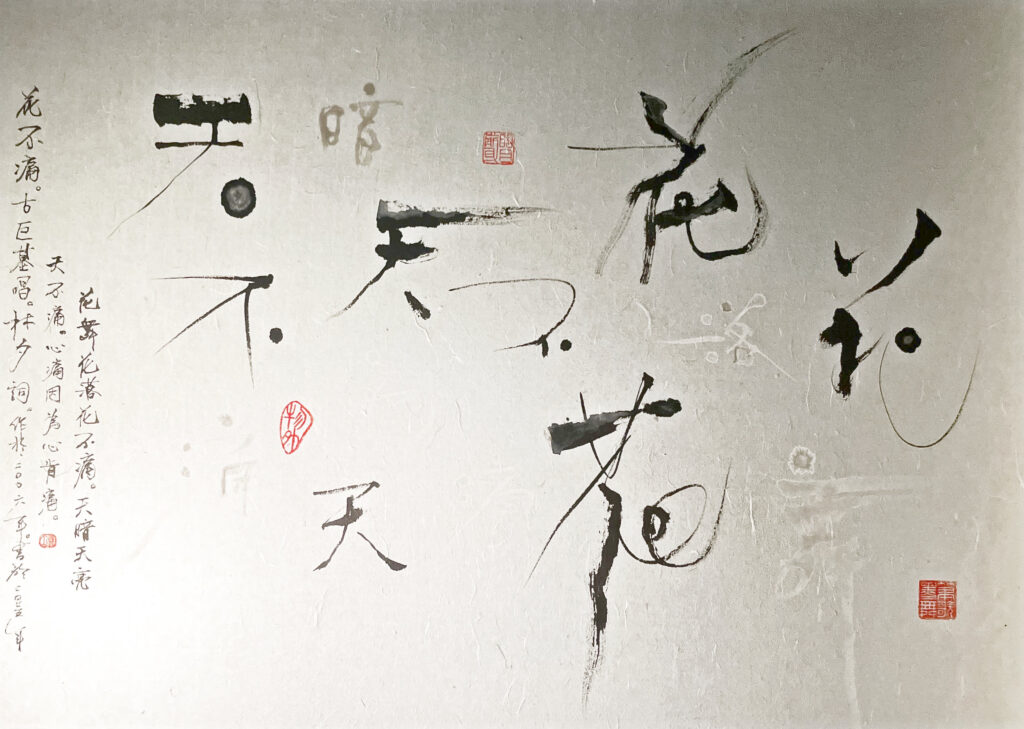 花舞
花落花
不
天
暗天
天不痛
花舞花落花不痛。天暗天亮
天不痛。心痛因為心肯痛。
花不痛。古巨基唱。林夕詞。作於二〇〇六年。書於二
物外
筆歌墨舞